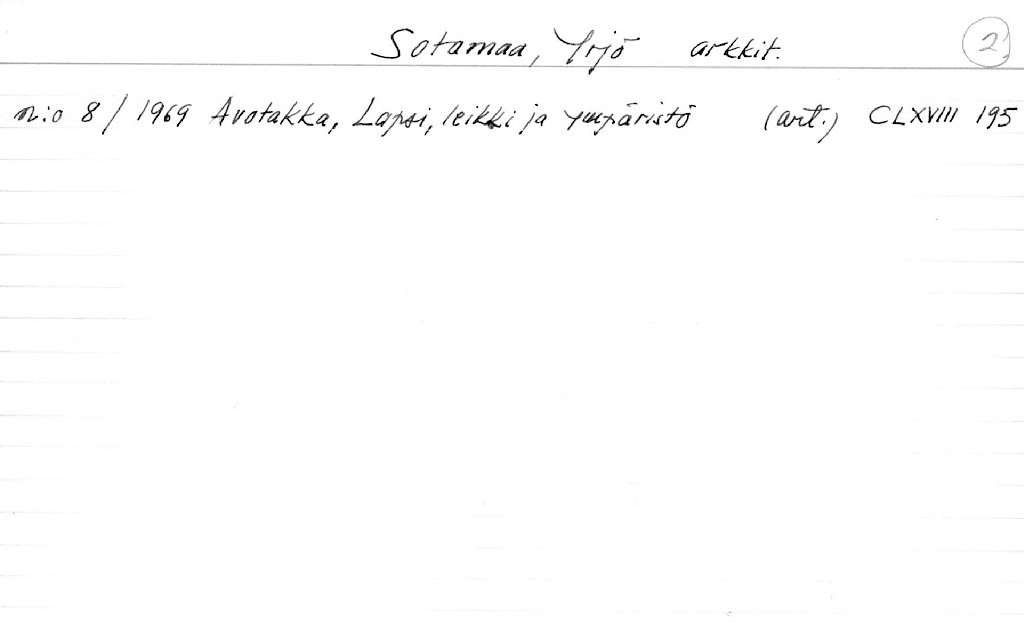 Sotamaa, Yrjö arkkit. 2
n:o 8 / 1969 Avotakka, Lapsi, leikki ja ympäristö (art.) CLXVIII 195